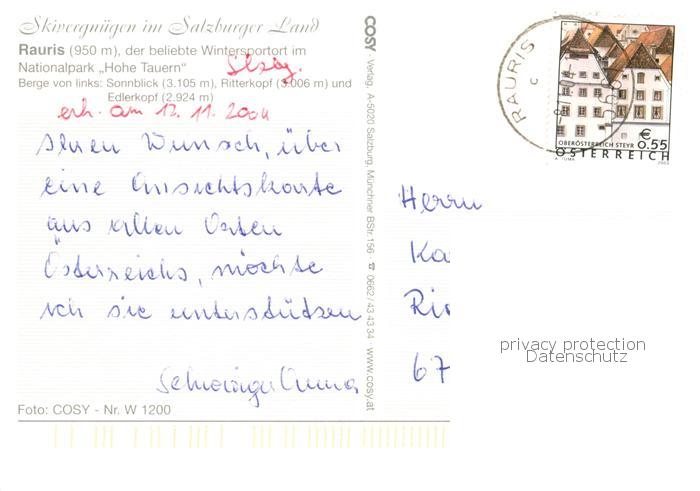 Skivergnügen im Salzburger Land
Rauris (950 m), der beliebte Wintersportort im
Nationalpark „Hohe Tauern“
Berge von links: Sonnblick (3.105 m), Ritterkopf (3.006 m) und
Edlerkopf (2.924 m)
erh. am 12. 11. 2004
Ihren Wunsch, über
eine Ansichtskarte
aus allen Orten
Österreichs, möchte
ich sie unterstützen
Anna
Foto: COSY - Nr. W 1200
COSY Verlag, A-5020 Salzburg, Münchner BStr. 156 · ☎ 0662/43 43 34 · www.cosy.at
RAURIS
€
0.55
OBERÖSTERREICH STEYR
ÖSTERREICH
A. TUMA 2003
Herrn
Ka
Ri
67
privacy protection
Datenschutz